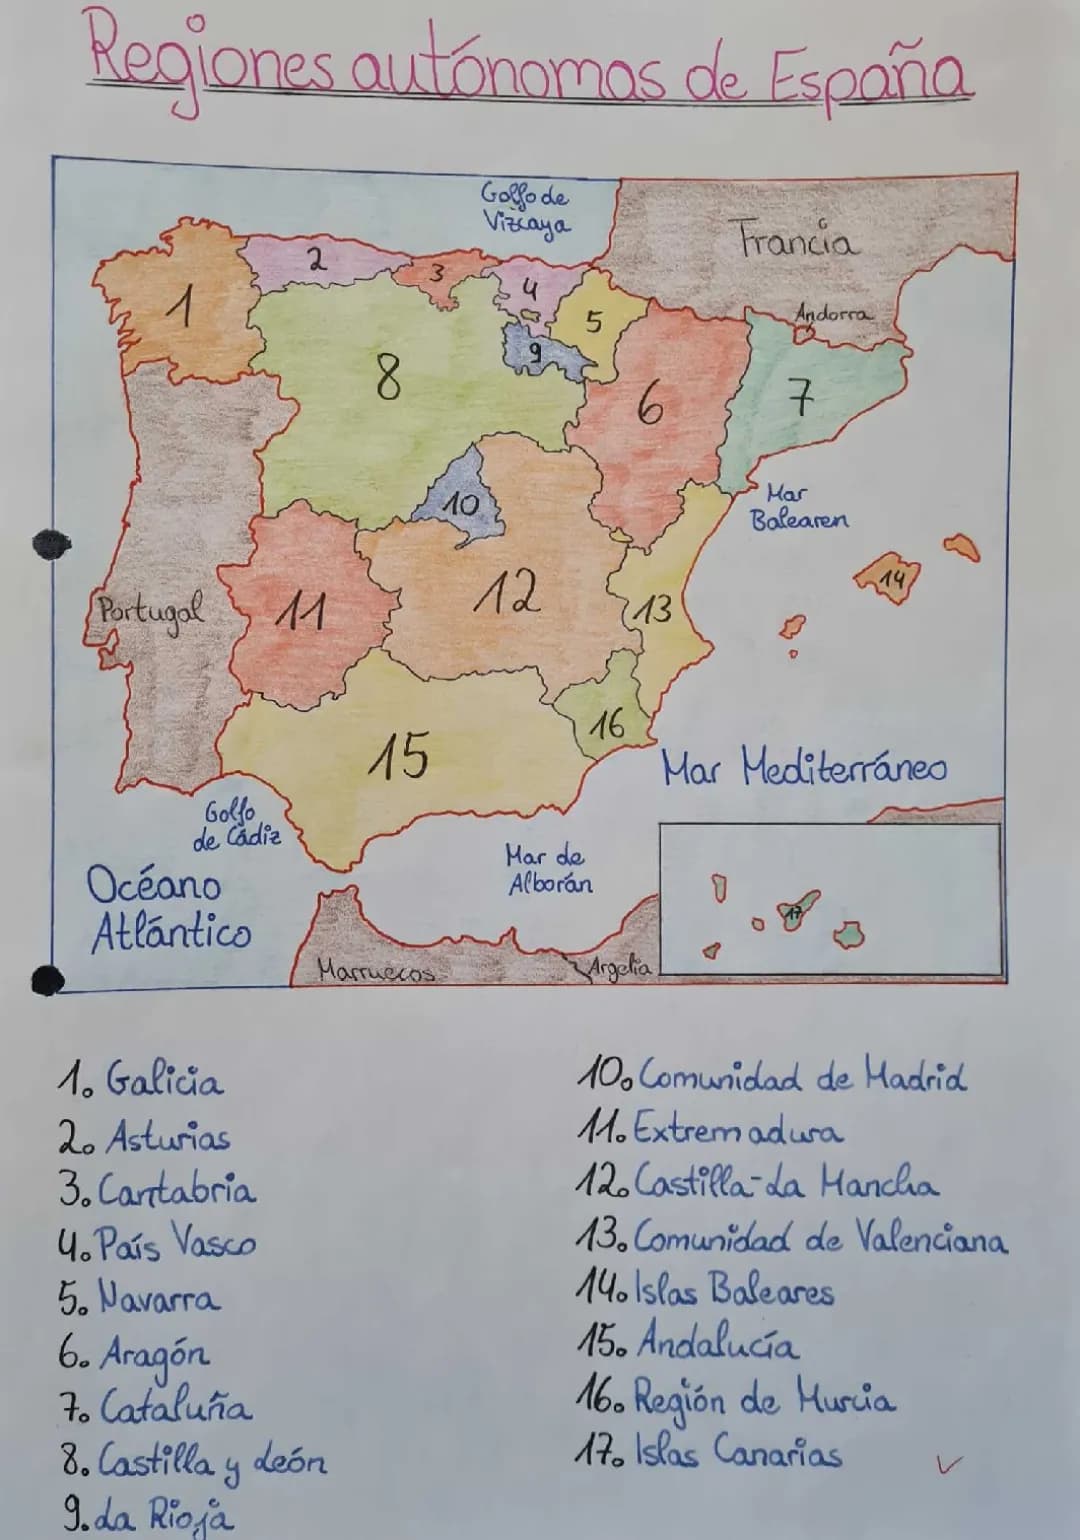 Regiones autónomas de España
Golfo de
Vizcaya
Francia
Andorra
1
2
3
4
5
6
7
8
9
10
11
12
13
14
15
16
17
Portugal
Mar
Balearen
Mar Mediterráneo
Golfo
de Cádiz
Mar de
Alborán
Océano
Atlántico
Marruecos
Argelia
1. Galicia
2. Asturias
3. Cantabria
4. País Vasco
5. Navarra
6. Aragón
7. Cataluña
8. Castilla y León
9. La Rioja
10. Comunidad de Madrid
11. Extremadura
12. Castilla-La Mancha
13. Comunidad de Valenciana
14. Islas Baleares
15. Andalucía
16. Región de Murcia
17. Islas Canarias